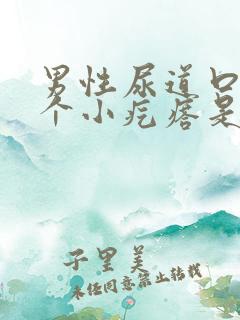 男性尿道口
个小疙瘩是
子里美
未经同意禁止转载